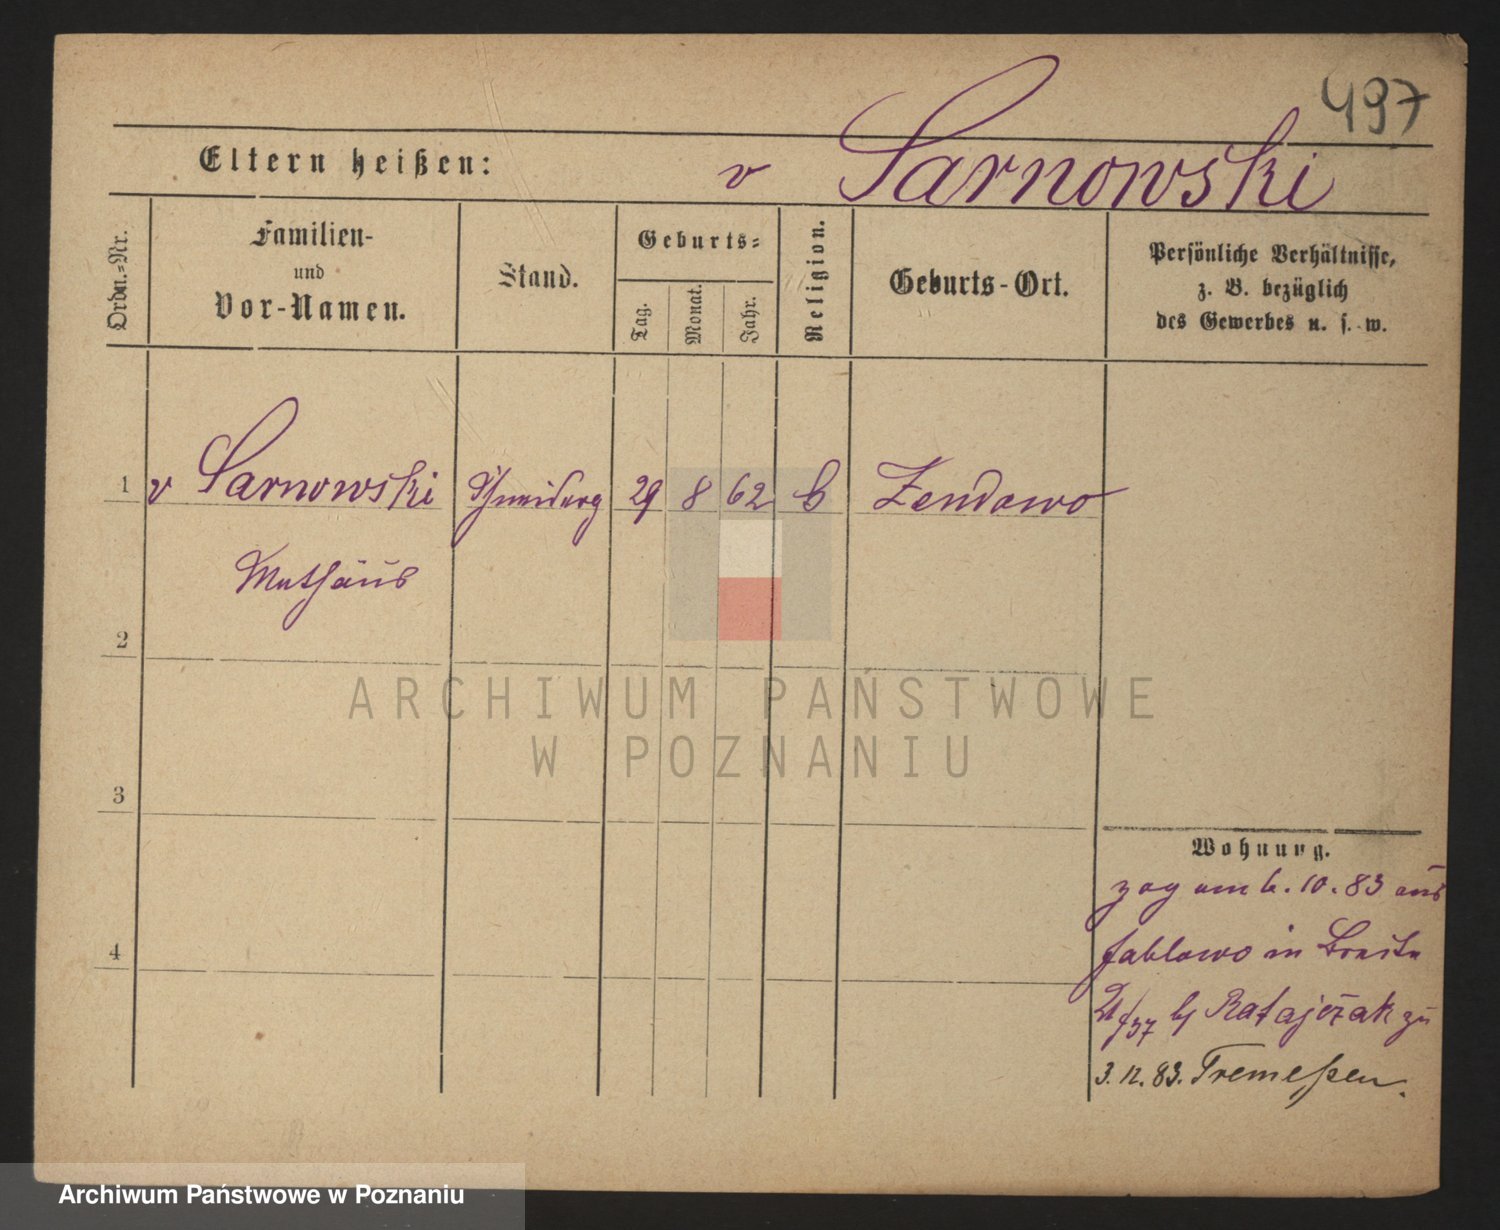 497
Eltern heißen: v Sarnowski
Ordn.=Nr.
Familien-
und
Vor-Namen.
Stand.
Geburts=
Tag.
Monat.
Jahr.
Religion.
Geburts-Ort.
Persönliche Verhältnisse,
z. B. bezüglich
des Gewerbes u. s. w.
1 v Sarnowski Schneiderg 29 8 62 Zendowo
Mathäus
2
3
4
Wohnung.
zog am 6. 10. 83 aus
in Breite
21/37 bj Ratajczak zu
3. 12. 83. Tremeßen.
ARCHIWUM PAŃSTWOWE
W POZNANIU
Archiwum Państwowe w Poznaniu